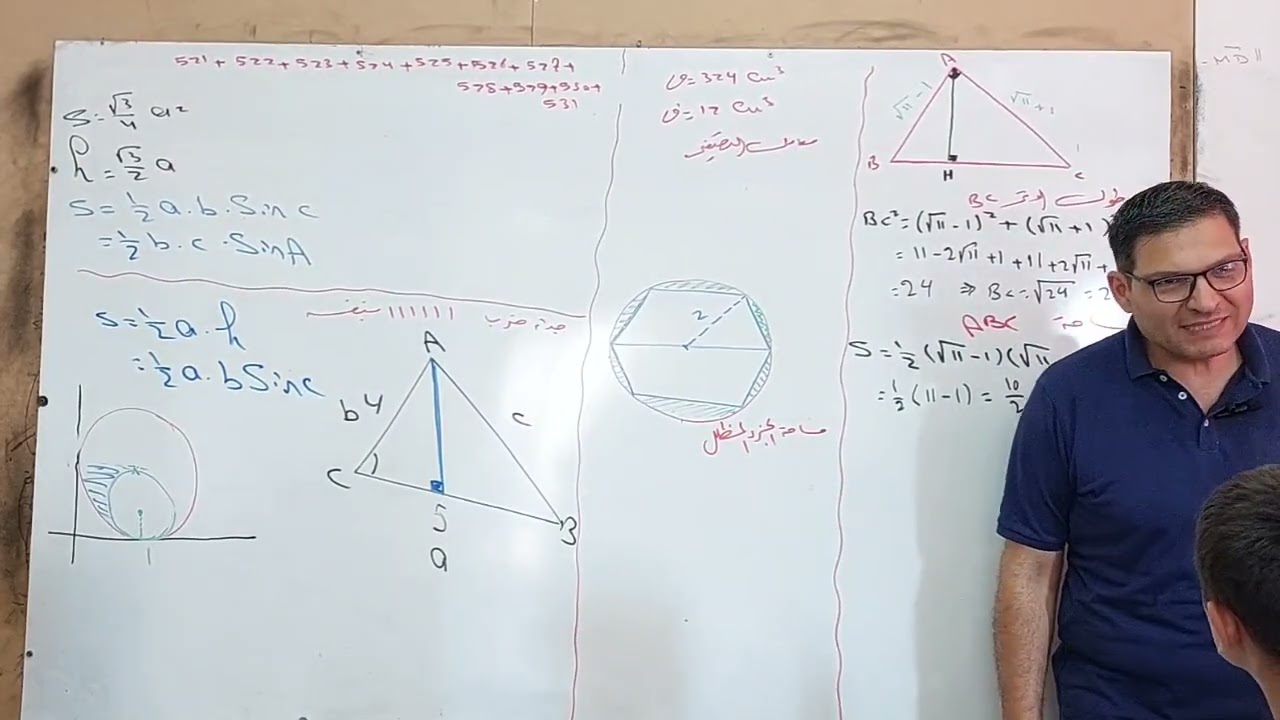 521 + 522 + 523 + 524 + 525 + 526 + 527 +
528 + 529 + 530 +
531
S = √3/4 a²
h = √3/2 a
S = 1/2 a . b . Sin c
= 1/2 b . c . Sin A
S = 1/2 a . h
= 1/2 a . b Sin c
جداء ضرب 111111
A
b 4
c
C
5
B
a
1
v = 324 cm³
v' = 12 cm³
2
مساحة الجزء المظلل
A
√11 - 1
√11 + 1
B
H
C
طول الوتر BC
BC² = (√11 - 1)² + (√11 + 1)
= 11 - 2√11 + 1 + 11 + 2√11 +
= 24 ⇒ BC = √24 = 2
ABC
S = 1/2 (√11 - 1)(√11
= 1/2 (11 - 1) = 10/2
- MD ||